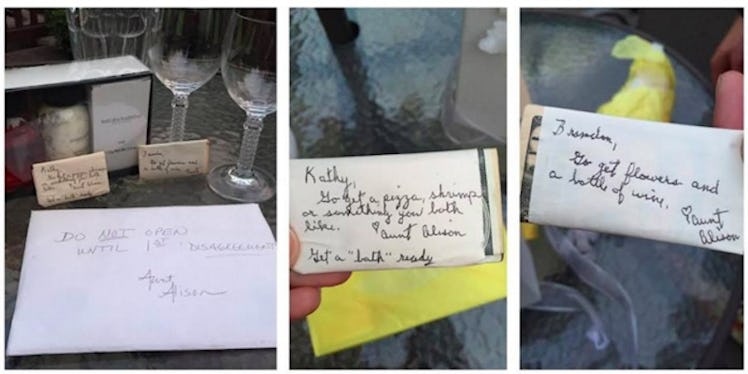 Kathy,
DO NOT OPEN
UNTIL 1ST DISAGREEMENT
Aunt
Alison
Kathy,
Go get a pizza, shrimp
or something you both
like. ♡ Aunt Alison
Get a "bath" ready
Brandon,
Go get flowers and
a bottle of wine.
♡ Aunt
Alison